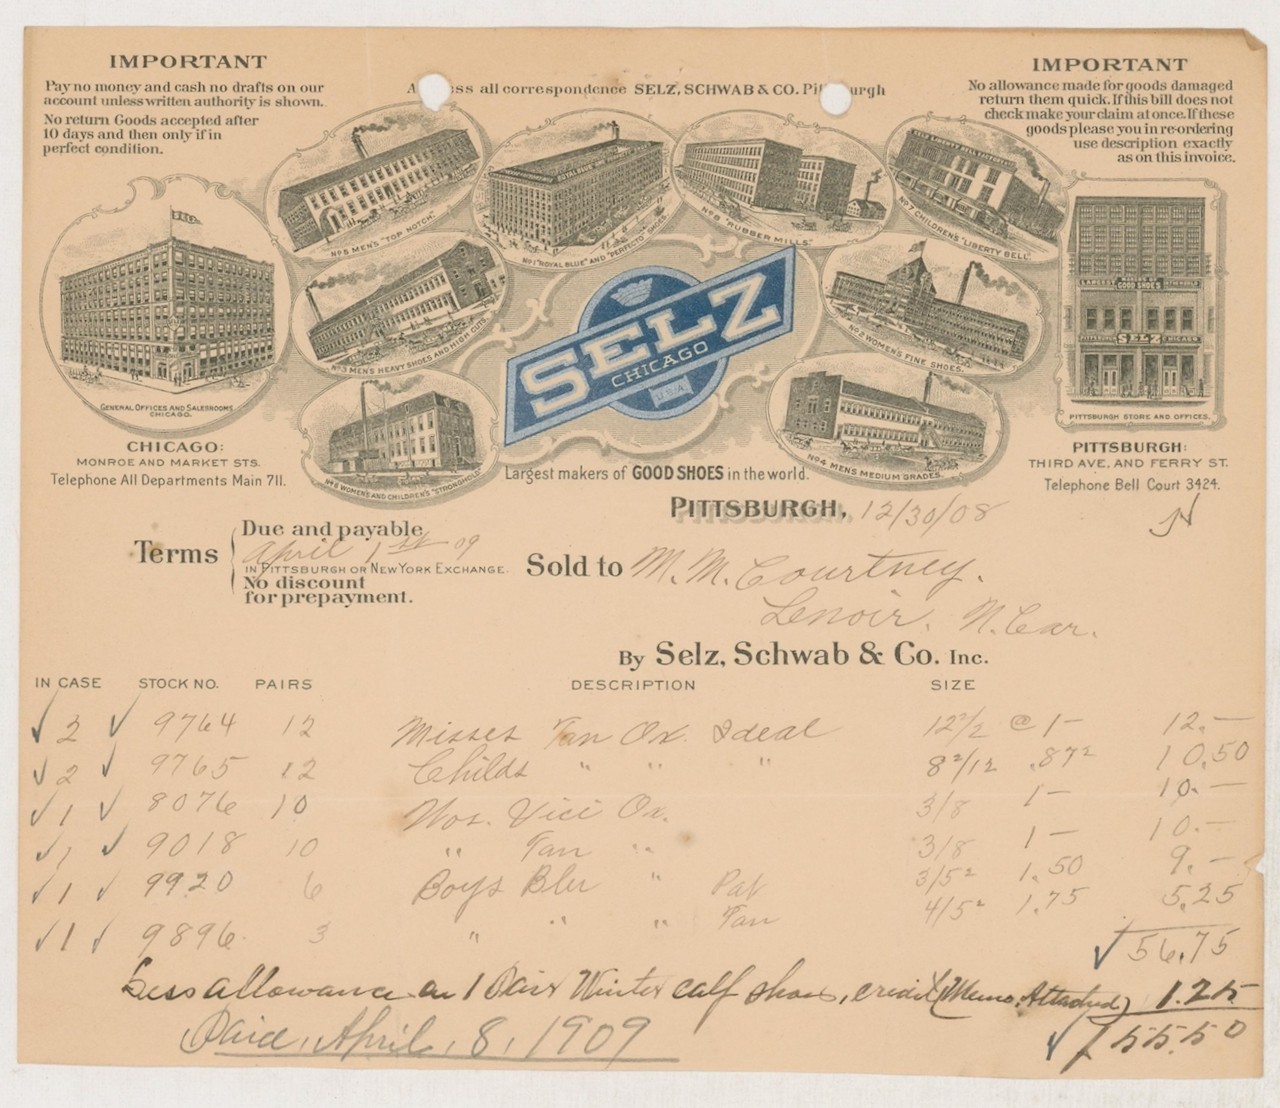 IMPORTANT
Pay no money and cash no drafts on our
account unless written authority is shown.
No return Goods accepted after
10 days and then only if in
perfect condition.
all correspondence SELZ, SCHWAB & CO.
IMPORTANT
No allowance made for goods damaged
return them quick. If this bill does not
check make your claim at once. If these
goods please you in re-ordering
use description exactly
as on this invoice.
No 5 MEN'S "TOP NOTCH".
No 1 "ROYAL BLUE" AND "PERFECTO" SHOES
No 8 "RUBBER MILLS"
No 7 CHILDREN'S "LIBERTY BELL".
No 3 MEN'S HEAVY SHOES AND HIGH CUTS.
No 2 WOMEN'S FINE SHOES.
No 6 WOMEN'S AND CHILDREN'S "STRONGHOLD"
No 4 MENS MEDIUM GRADES.
SELZ
CHICAGO
U.S.A.
GOOD SHOES
SELZ
GENERAL OFFICES AND SALESROOMS
CHICAGO.
PITTSBURGH STORE AND OFFICES.
CHICAGO:
MONROE AND MARKET STS.
Telephone All Departments Main 711.
Largest makers of GOOD SHOES in the world.
PITTSBURGH:
THIRD AVE. AND FERRY ST.
Telephone Bell Court 3424.
PITTSBURGH, 12/30/08
Terms
Due and payable
April 1st 09
IN PITTSBURGH OR NEW YORK EXCHANGE.
No discount
for prepayment.
Sold to M. M. Courtney.
Lenoir. N. Car.
By Selz, Schwab & Co. Inc.
IN CASE STOCK NO. PAIRS DESCRIPTION SIZE
✓ 2 ✓ 9764 12 Misses Tan Ox. Ideal 12/2 @ 1– 12.–
✓ 2 ✓ 9765 12 Childs " " " 8/12 .87² 10.50
✓ 1 ✓ 8076 10 Wos. Vici Ox. 3/8 1– 10.–
✓ 1 ✓ 9018 10 " Tan " 3/8 1– 10.–
✓ 1 ✓ 9920 6 Boys Blu " Pat 3/5² 1.50 9.–
✓ 1 ✓ 9896 3 " " " Tan 4/5² 1.75 5.25
✓ 56.75
Less allowance on 1 Pair Winter calf shoes, credit (Memo. Attached) 1.25
Paid, April, 8, 1909
✓ 55.50